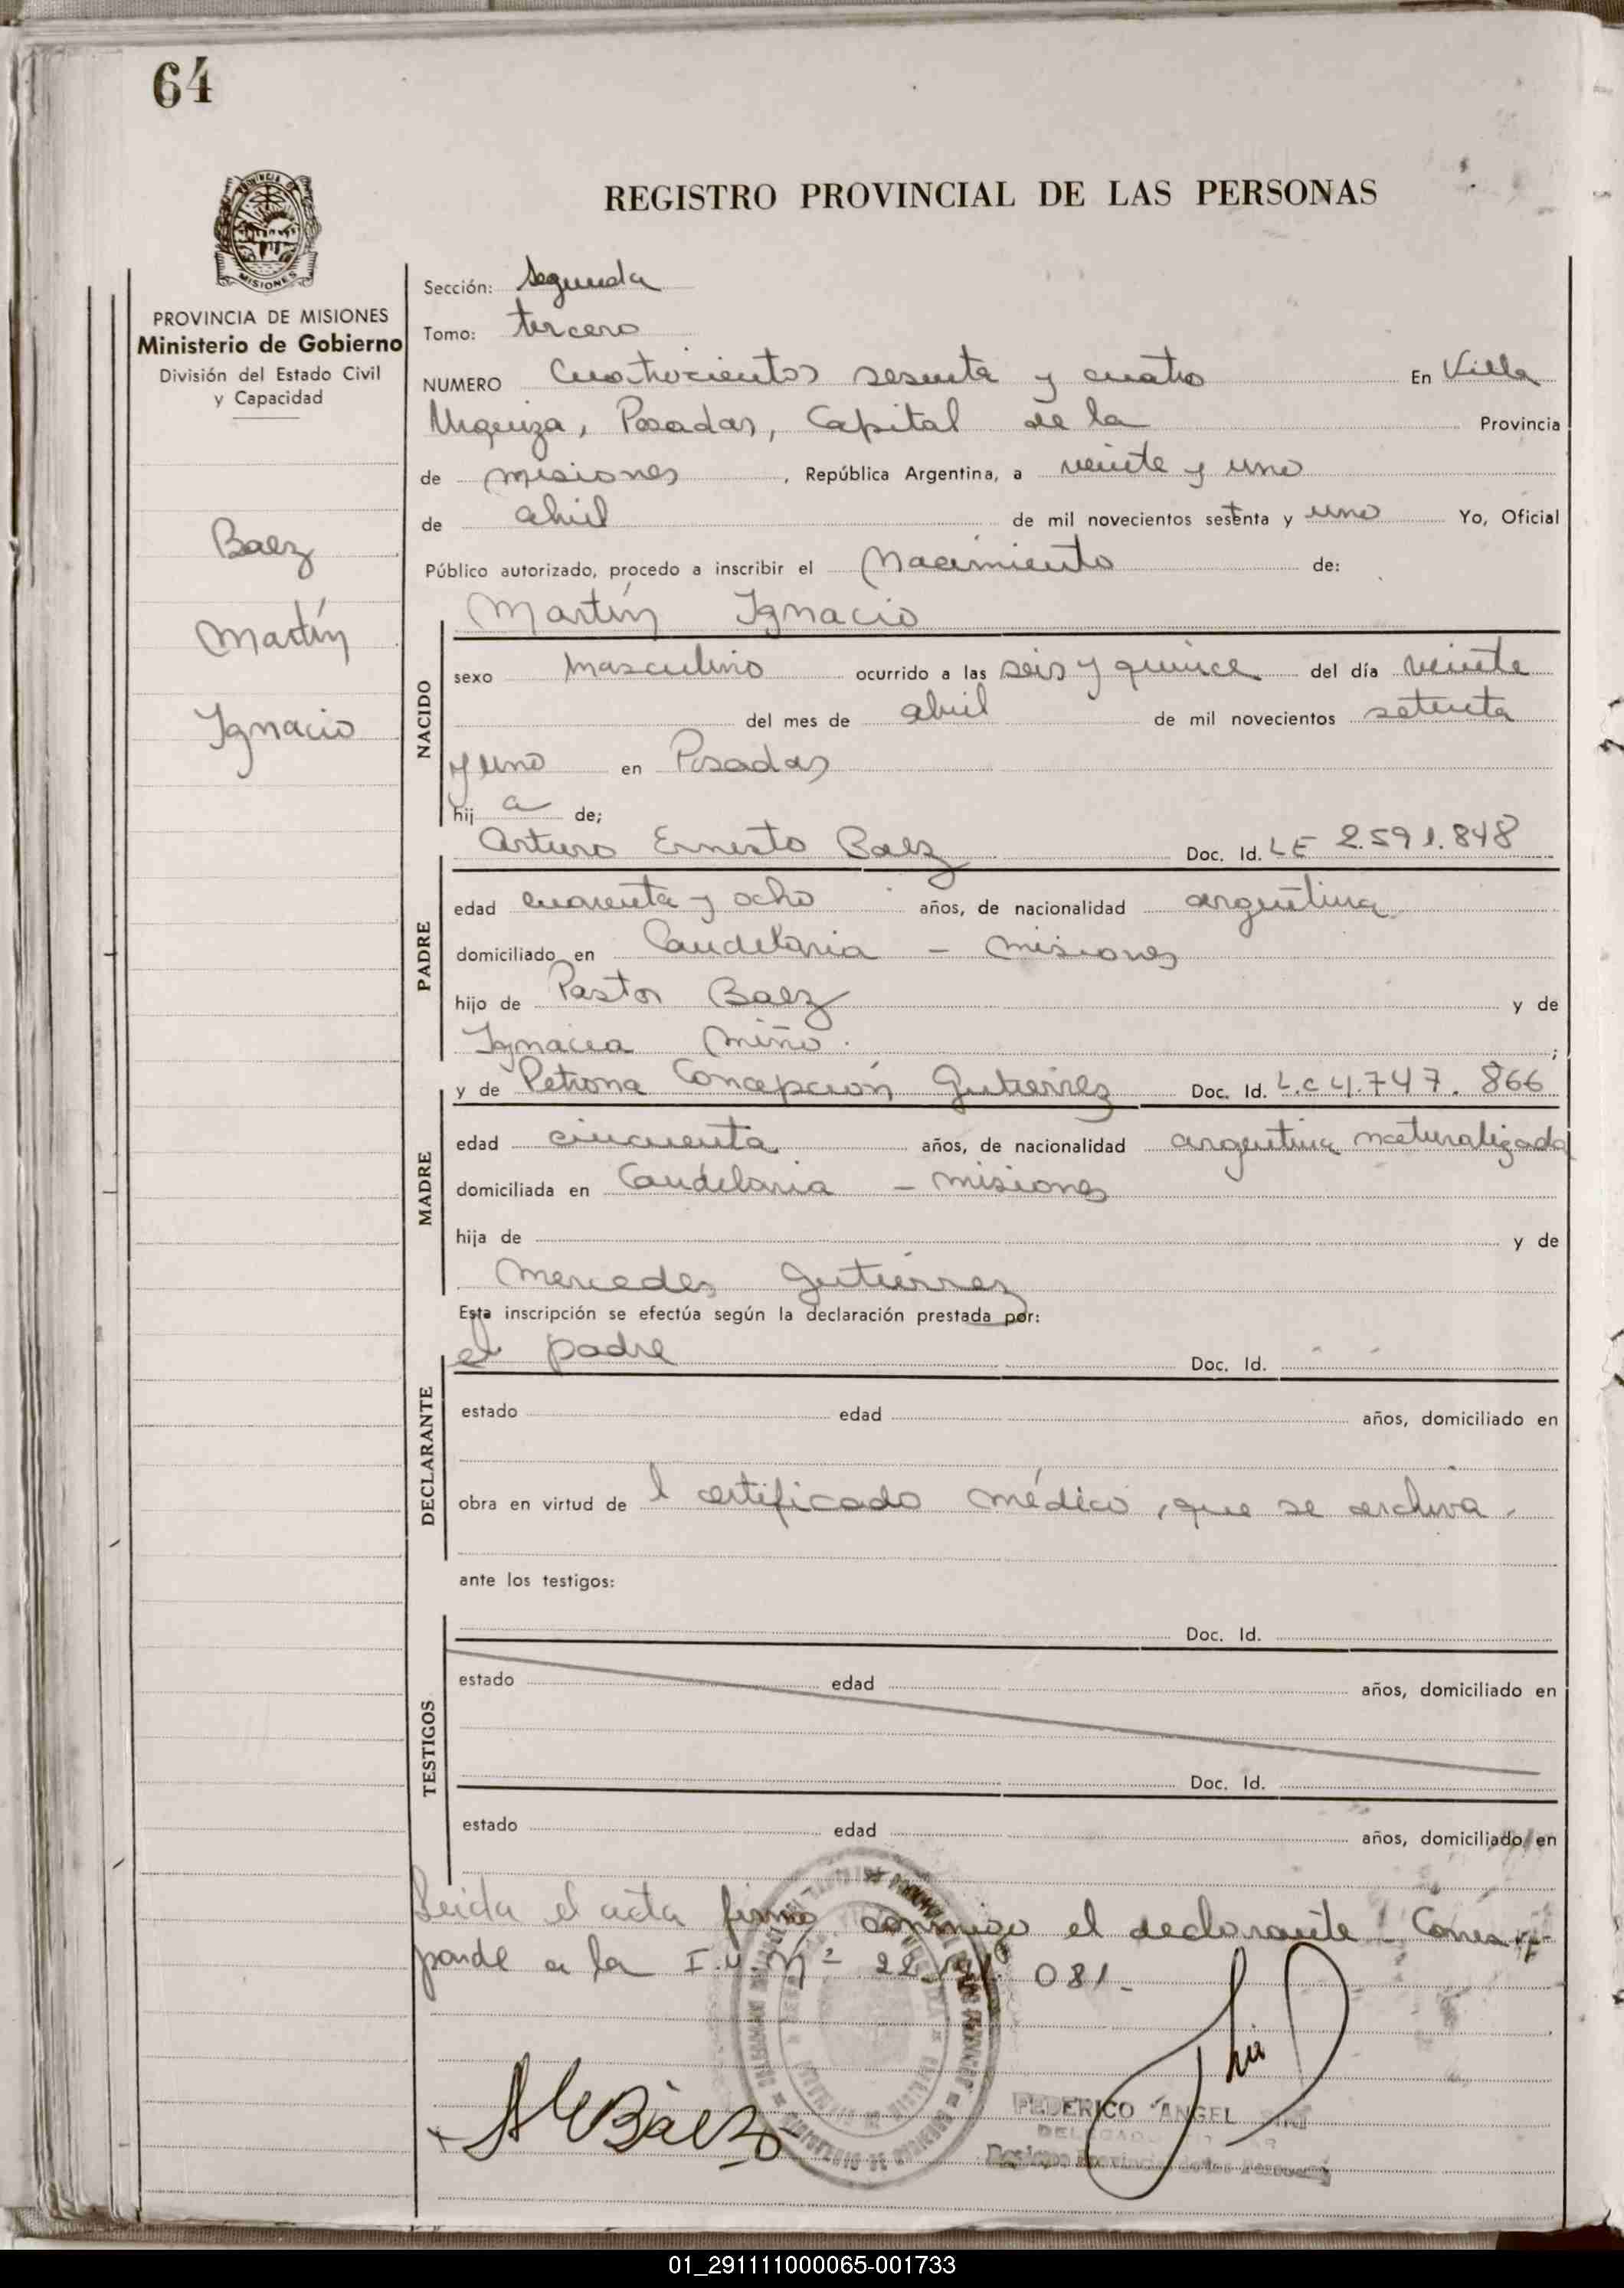 64
PROVINCIA DE
MISIONES
REGISTRO PROVINCIAL DE LAS PERSONAS
PROVINCIA DE MISIONES
Ministerio de Gobierno
División del Estado Civil
y Capacidad
Baez
Martín
Ignacio
Sección: segunda
Tomo: tercero
NUMERO Cuatrocientos sesenta y cuatro En Villa
Urquiza, Posadas, Capital de la Provincia
de Misiones, República Argentina, a veinte y uno
de abril de mil novecientos setenta y uno Yo, Oficial
Público autorizado, procedo a inscribir el Nacimiento de:
Martín Ignacio
NACIDO
sexo masculino ocurrido a las seis y quince del día veinte
del mes de abril de mil novecientos setenta
y uno en Posadas
hij a de;
Arturo Ernesto Baez Doc. Id. LE 2.591.848
PADRE
edad cuarenta y ocho años, de nacionalidad argentina
domiciliado en Candelaria - Misiones
hijo de Pastor Baez y de
Ignacia Miño. ;
y de Petrona Concepción Gutierrez Doc. Id. L.C 4.747.866
MADRE
edad cincuenta años, de nacionalidad argentina naturalizada
domiciliada en Candelaria - Misiones
hija de y de
Mercedes Gutierrez
Esta inscripción se efectúa según la declaración prestada por:
el padre Doc. Id.
DECLARANTE
estado edad años, domiciliado en
obra en virtud de l certificado médico, que se archiva.
ante los testigos:
Doc. Id.
TESTIGOS
estado edad años, domiciliado en
Doc. Id.
estado edad años, domiciliado en
Leida el acta firma conmigo el declarante. Corres-
ponde a la I.U. Nº 22. 081.
A E Báez
FEDERICO ANGEL
Registro Provincial de las Personas
01_291111000065-001733